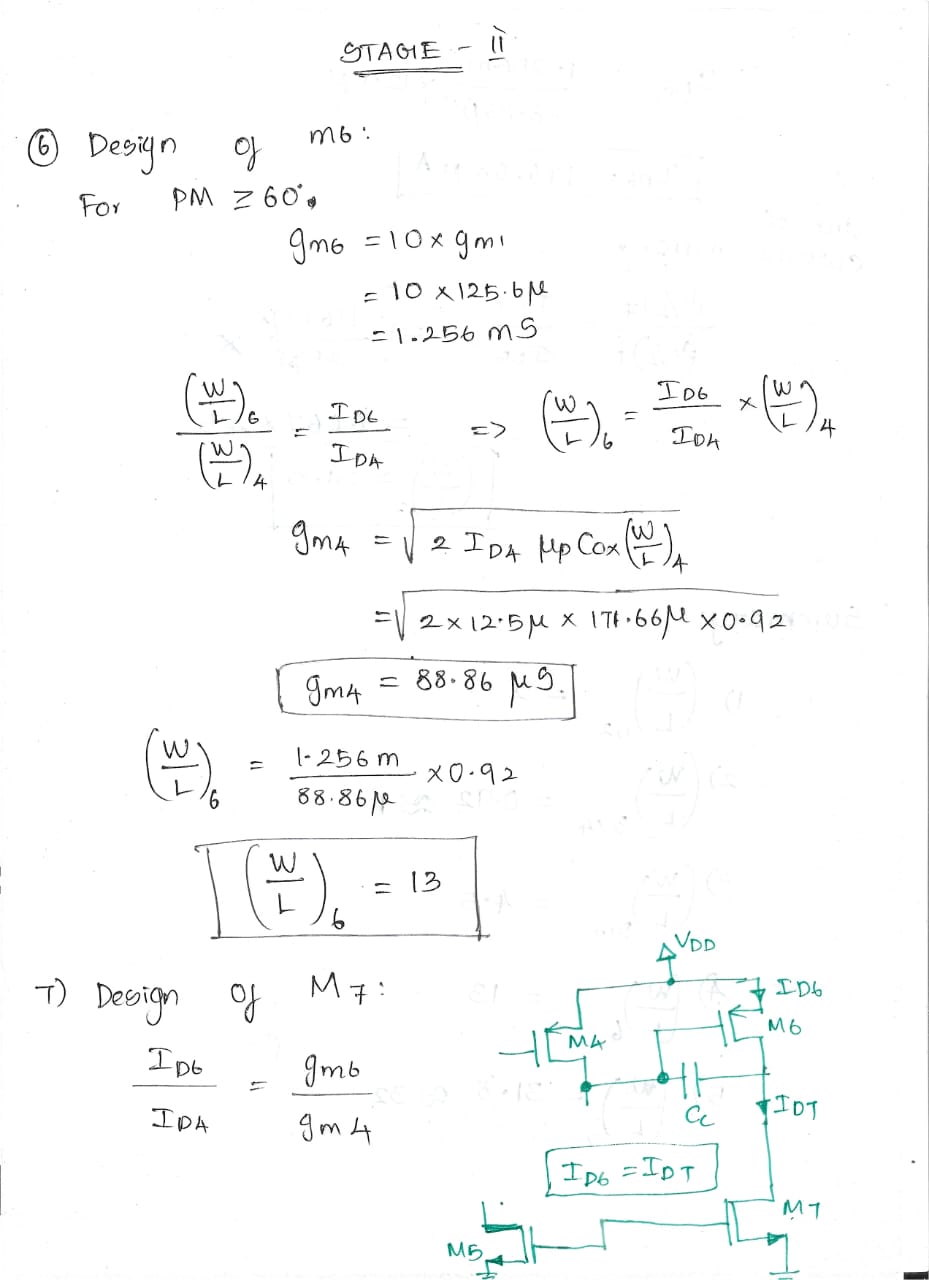 STAGE - ii
⑥ Design of m6:
For PM ≥ 60°,
gm6 = 10 × gm1
= 10 × 125.6µ
= 1.256 mS
(W/L)6 / (W/L)4 = ID6 / ID4 => (W/L)6 = ID6 / ID4 × (W/L)4
gm4 = √(2 ID4 µp Cox (W/L)4)
= √(2 × 12.5µ × 171.66µ × 0.92
gm4 = 88.86 µS.
(W/L)6 = 1.256m / 88.86µ × 0.92
(W/L)6 = 13
7) Design of M7:
ID6 / ID4 = gm6 / gm4
VDD
ID6
M4
M6
Cc
ID7
ID6 = ID7
M7
M5